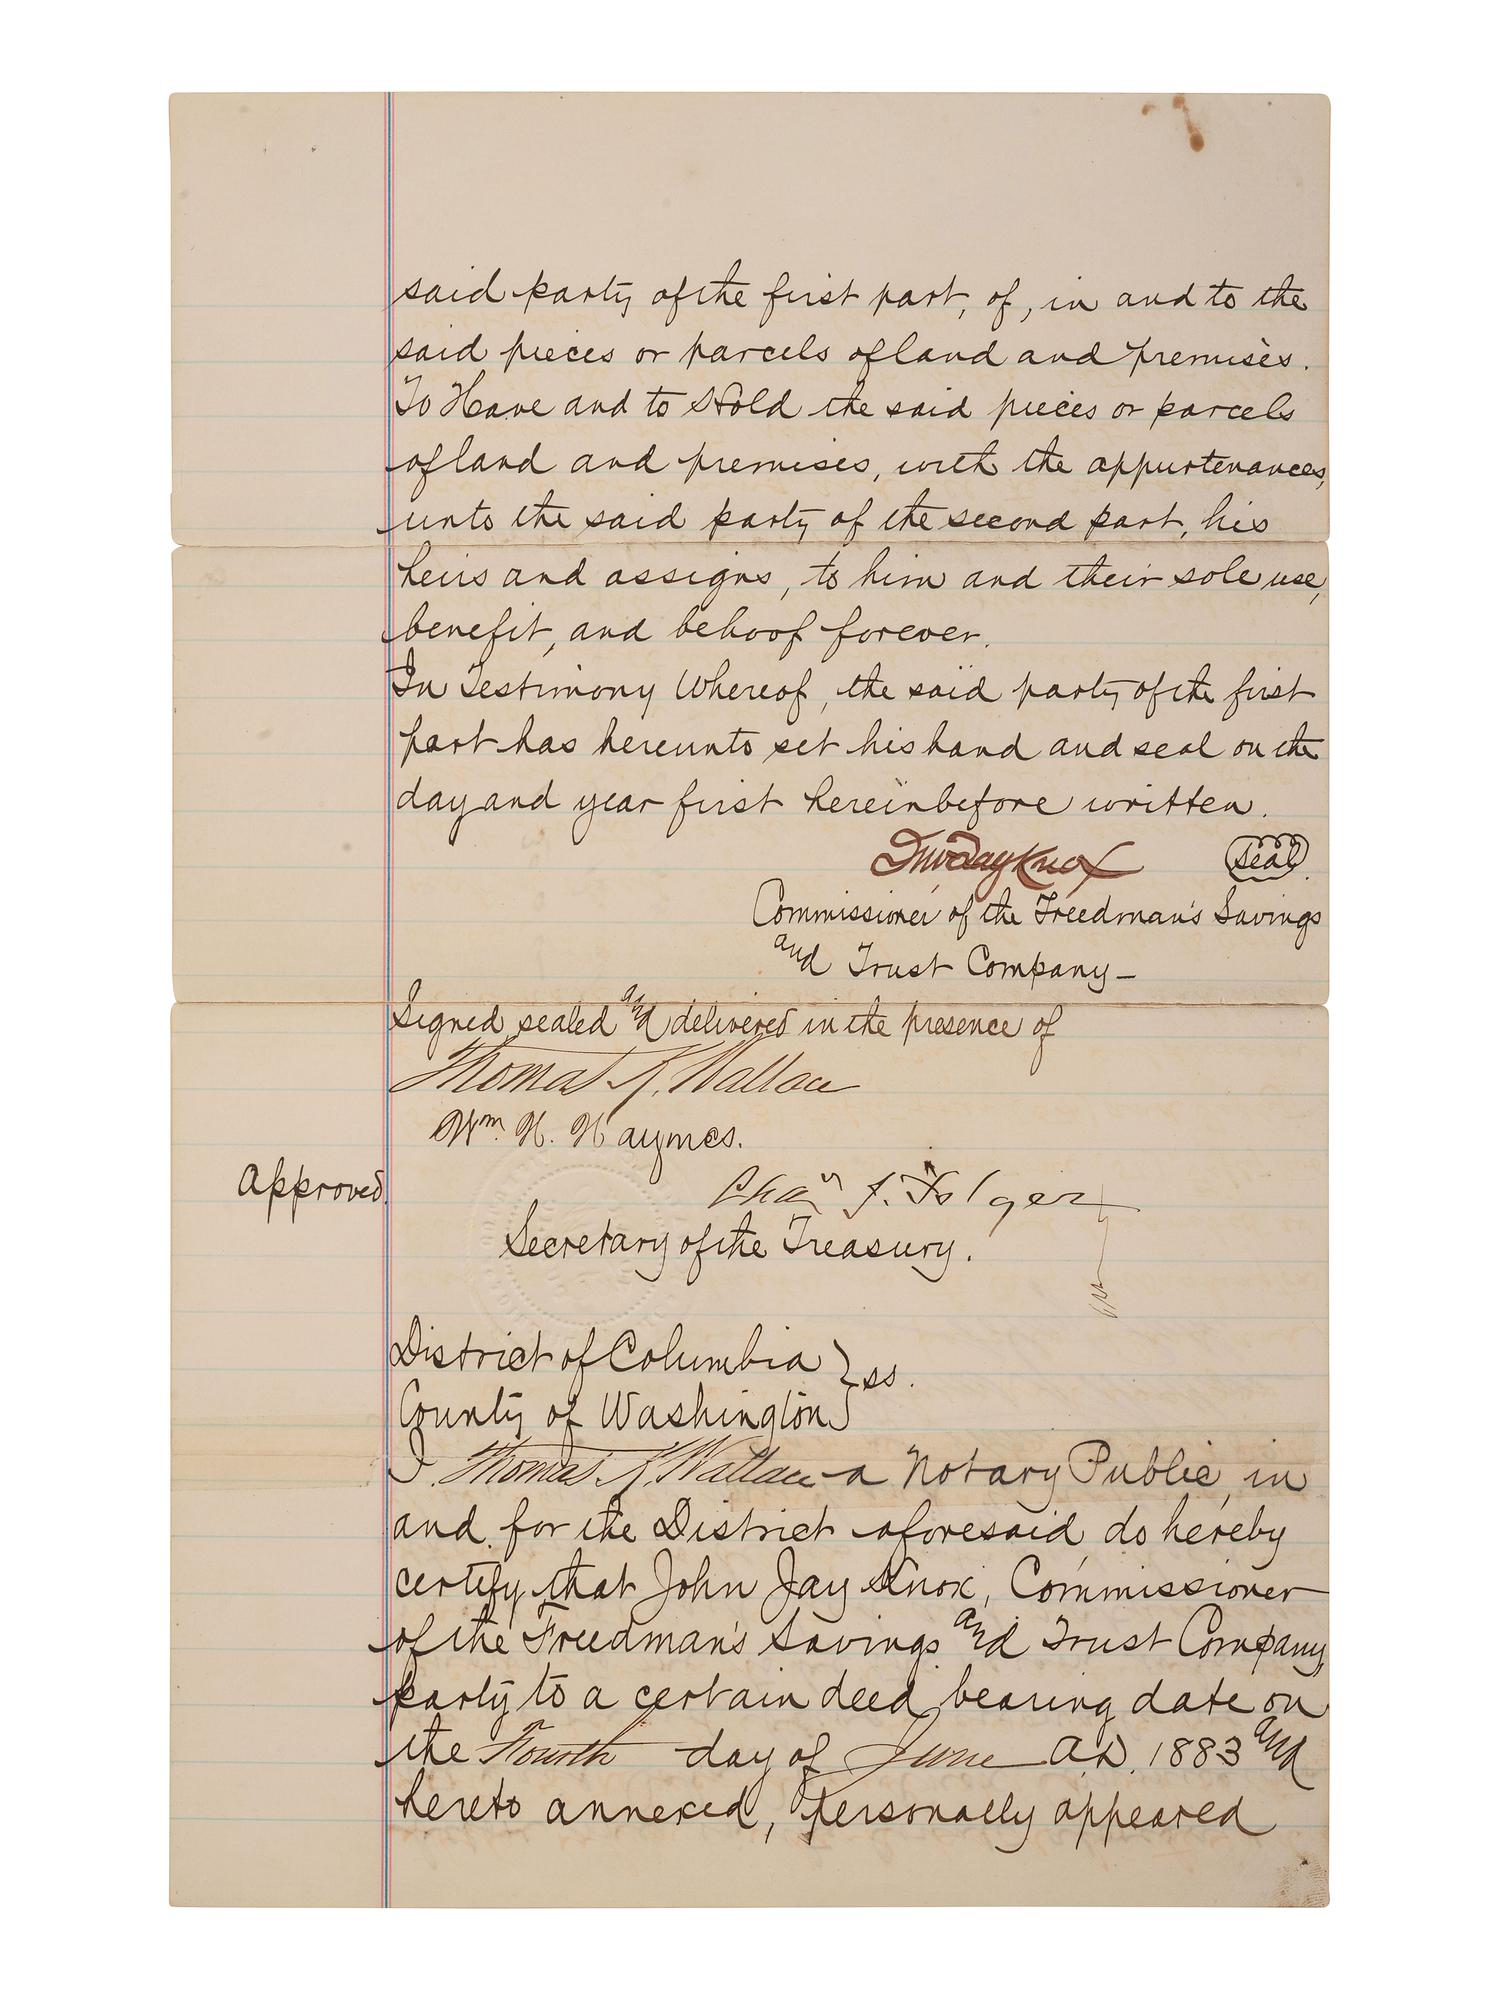 said party of the first part, of, in and to the
said pieces or parcels of land and premises.
To Have and to Hold the said pieces or parcels
of land and premises, with the appurtenances,
unto the said party of the second part, his
heirs and assigns, to him and their sole use,
benefit, and behoof forever.
In Testimony Whereof, the said party of the first
part has hereunto set his hand and seal on the
day and year first hereinbefore written.
Jno Jay Knox seal
Commissioner of the Freedman's Savings
and Trust Company—
Signed, sealed and delivered in the presence of
Thomas K. Wallace
Wm. H. Haymes.
Approved.
Chas J. Folger
Secretary of the Treasury.
District of Columbia } ss.
County of Washington }
I Thomas K. Wallace a Notary Public, in
and for the District aforesaid do hereby
certify that John Jay Knox, Commissioner
of the Freedman's Savings and Trust Company,
party to a certain deed bearing date on
the Fourth day of June A.D. 1883 and
hereto annexed, personally appeared